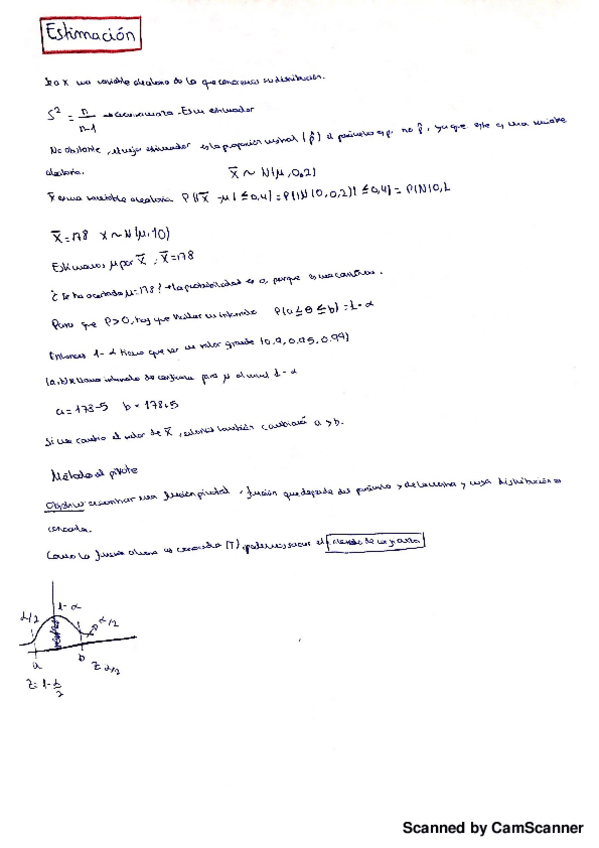 Estimación
Sea X una variable aleatoria de la que conocemos su distribución.
S² = n/n-1 → Es un estimador
No obstante, el mejor estimador es la proporción muestral (p̂) el parámetro es p, no p̂, ya que este es una variable
aleatoria. X̄ ~ N(μ, 0,2)
X̄ es una variable aleatoria P(|X̄ - μ| ≤ 0,4) = P(|N(0, 0,2)| ≤ 0,4) = P(N(0,1
X̄ = 178 X ~ N(μ, 10)
Estimamos μ por X̄, X̄ = 178
¿Se ha acertado μ = 178? → la probabilidad es 0, porque es una continua.
Para que P > 0, hay que hallar un intervalo P(a ≤ θ ≤ b) = 1 - α
Entonces 1 - α tiene que ser un valor grande (0,9, 0,95, 0,99)
(a, b) se llama intervalo de confianza para μ al nivel 1 - α
a = 178-5 b = 178+5
Si me cambia el valor de X̄, también cambiará a y b.
Método del pivote
Objetivo: encontrar una función pivotal, función que depende del parámetro y de la muestra y cuya distribución es
conocida.
Como la función ahora es conocida (T), podemos sacar el
1-α
α/2 α/2
a b Z α/2
Z = 1-α/2
Scanned by CamScanner